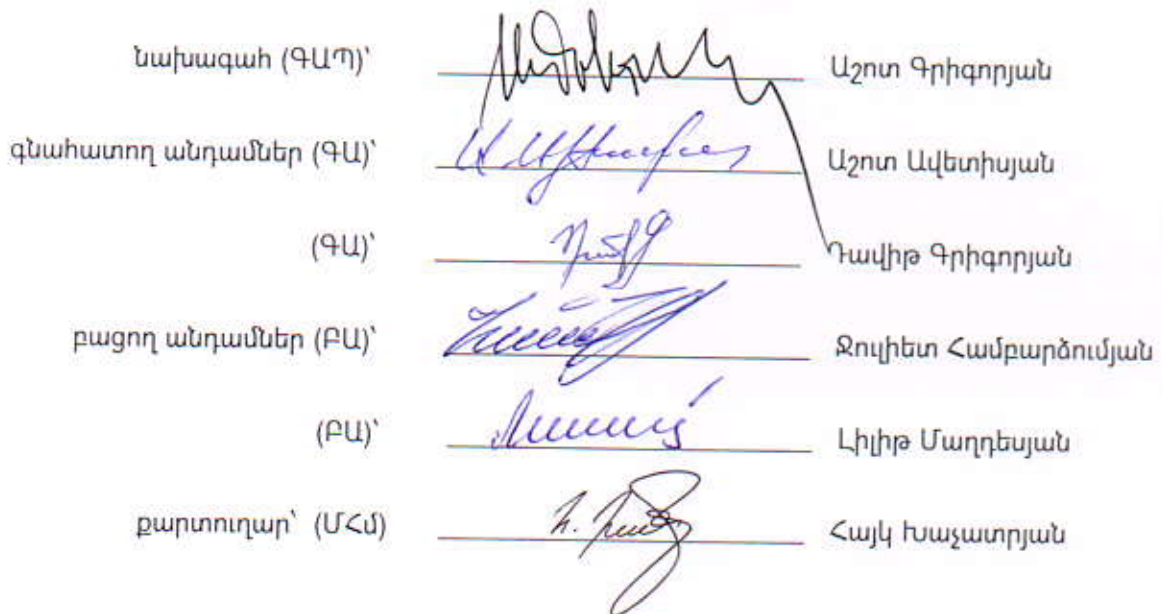 նախագահ (ԳԱՊ)՝ Աշոտ Գրիգորյան
գնահատող անդամներ (ԳԱ)՝ Աշոտ Ավետիսյան
(ԳԱ)՝ Դավիթ Գրիգորյան
բացող անդամներ (ԲԱ)՝ Ջուլիետ Համբարձումյան
(ԲԱ)՝ Լիլիթ Մաղդեսյան
քարտուղար՝ (ՄՀմ) Հայկ Խաչատրյան